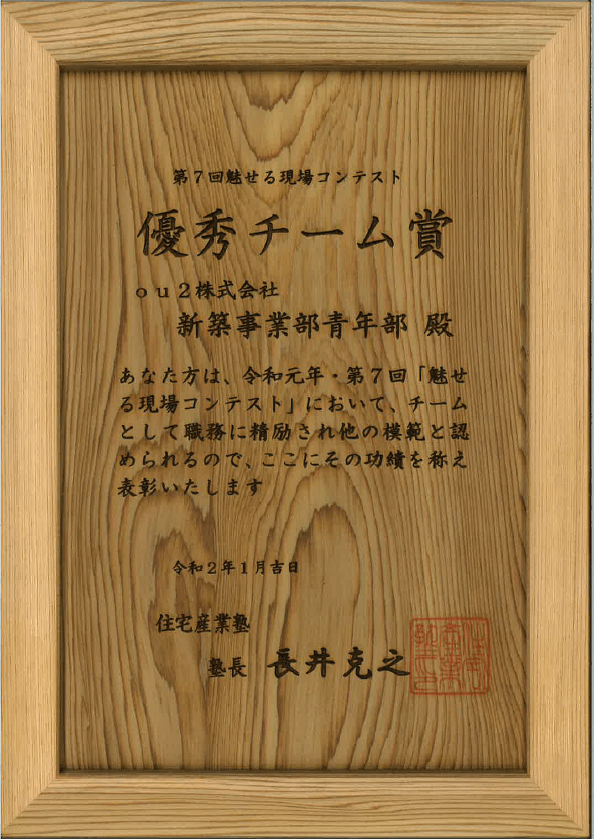 第7回魅せる現場コンテスト
優秀チーム賞
ou2株式会社
新築事業部青年部 殿
あなた方は、令和元年・第7回「魅せ
る現場コンテスト」において、チーム
として職務に精励され他の模範と認
められるので、ここにその功績を称え
表彰いたします
令和2年1月吉日
住宅産業塾
塾長 長井克之